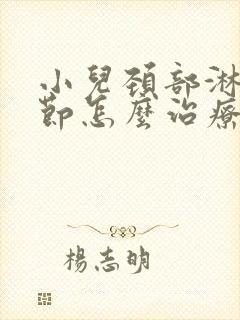 小兒頚部淋
節怎麼治療
楊志明